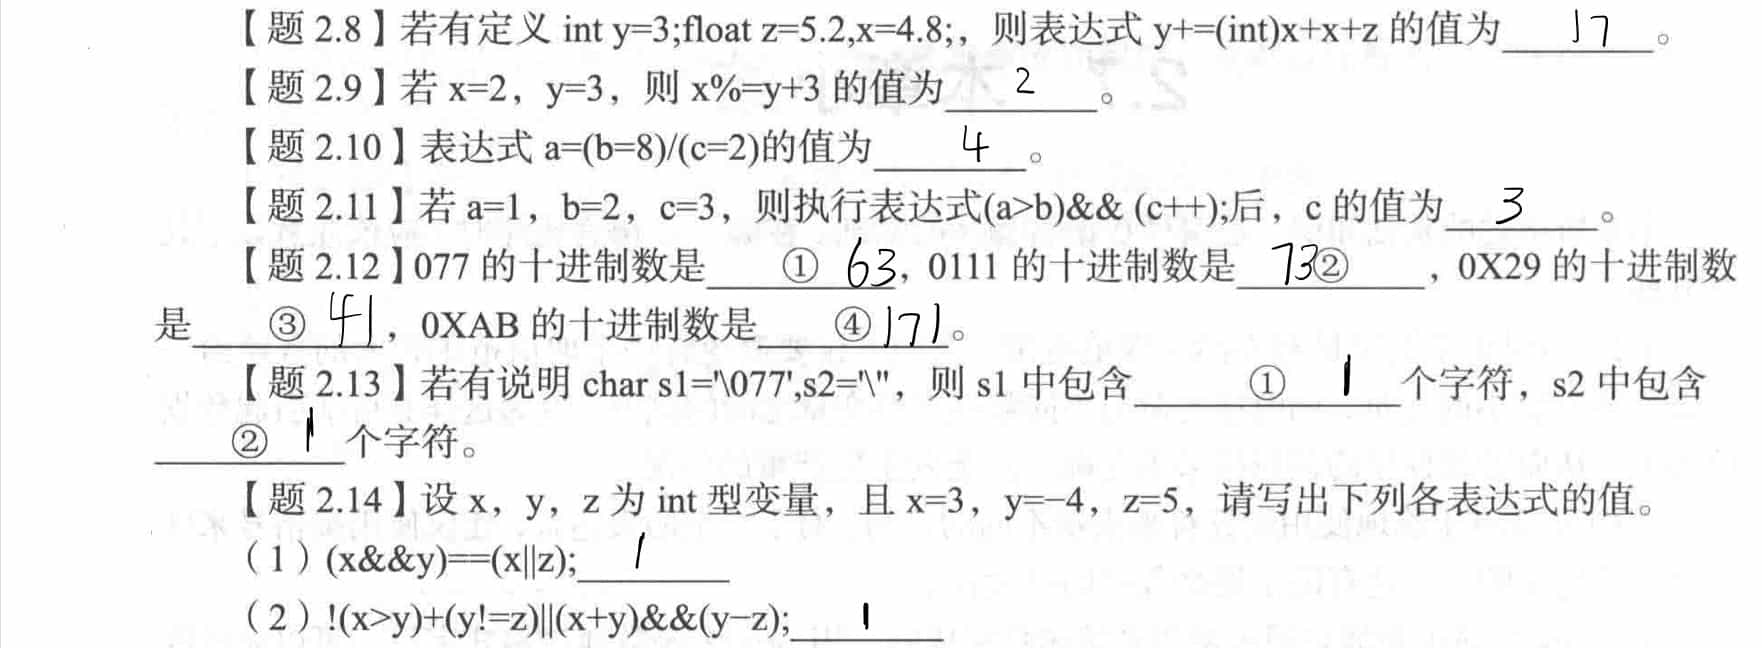 【题 2.8】若有定义 int y=3;float z=5.2,x=4.8;，则表达式 y+=(int)x+x+z 的值为 17 。
【题 2.9】若 x=2，y=3，则 x%=y+3 的值为 2 。
【题 2.10】表达式 a=(b=8)/(c=2)的值为 4 。
【题 2.11】若 a=1，b=2，c=3，则执行表达式(a>b)&& (c++);后，c 的值为 3 。
【题 2.12】077 的十进制数是 ① 63，0111 的十进制数是 73② ，0X29 的十进制数
是 ③ 41，0XAB 的十进制数是 ④171。
【题 2.13】若有说明 char s1='\077',s2='\''，则 s1 中包含 ① 1 个字符，s2 中包含
② 1 个字符。
【题 2.14】设 x，y，z 为 int 型变量，且 x=3，y=−4，z=5，请写出下列各表达式的值。
（1）(x&&y)==(x||z); 1
（2）!(x>y)+(y!=z)||(x+y)&&(y−z); 1